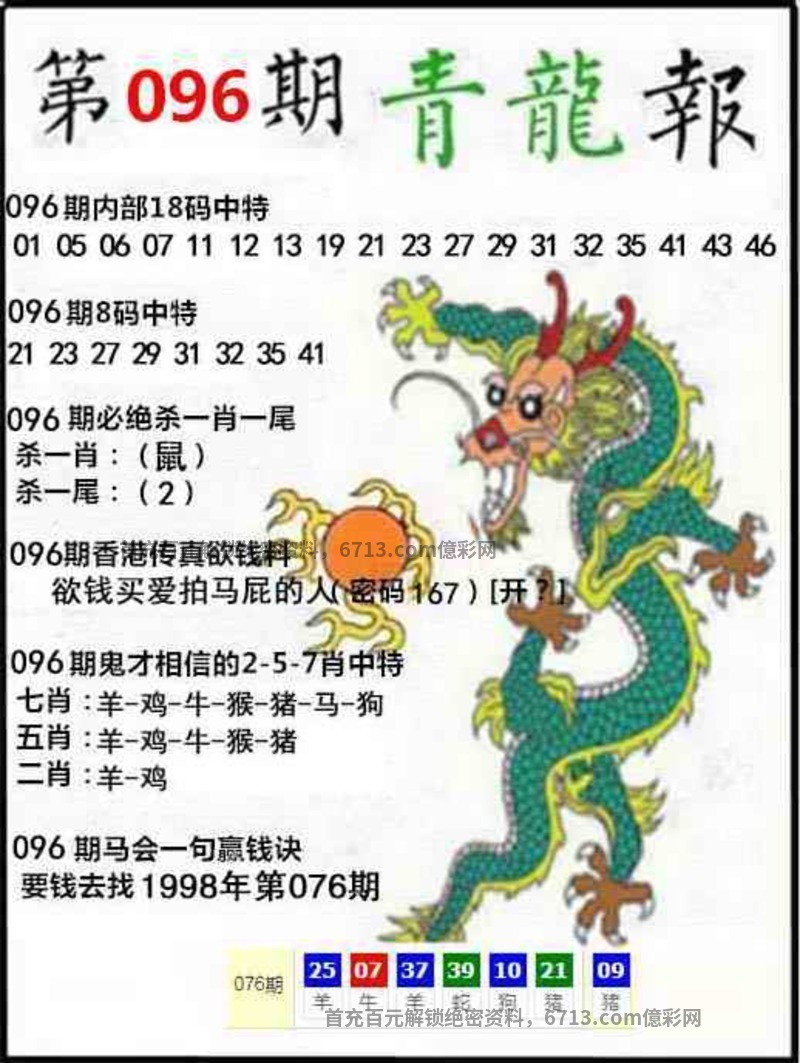 第096期青龍報
096期内部18码中特
01 05 06 07 11 12 13 19 21 23 27 29 31 32 35 41 43 46
096期8码中特
21 23 27 29 31 32 35 41
096期必绝杀一肖一尾
杀一肖:(鼠)
杀一尾:(2)
096期香港传真欲钱料
资料,6713.com億彩网
欲钱买爱拍马屁的人(密码167)[开?]
096期鬼才相信的2-5-7肖中特
七肖:羊-鸡-牛-猴-猪-马-狗
五肖:羊-鸡-牛-猴-猪
二肖:羊-鸡
096期马会一句赢钱诀
要钱去找1998年第076期
076期 25 07 37 39 10 21 09
羊 牛 羊 蛇 狗 猪 猪
首充百元解锁绝密资料,6713.com億彩网